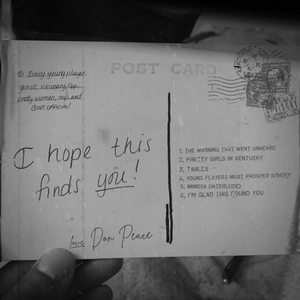 POST CARD
To: Every young player,
pretty women, cop, and
I hope this
finds you!
Love Don Peace
1, THE WARNING THAT WENT UNHEARD
2, PRETTY GIRLS IN KENTUCKY
3, TABLES
4, YOUNG PLAYERS MUST PROSPER
5, MIMOSA (INTERLUDE)
6, I'M GLAD THIS FOUND YOU